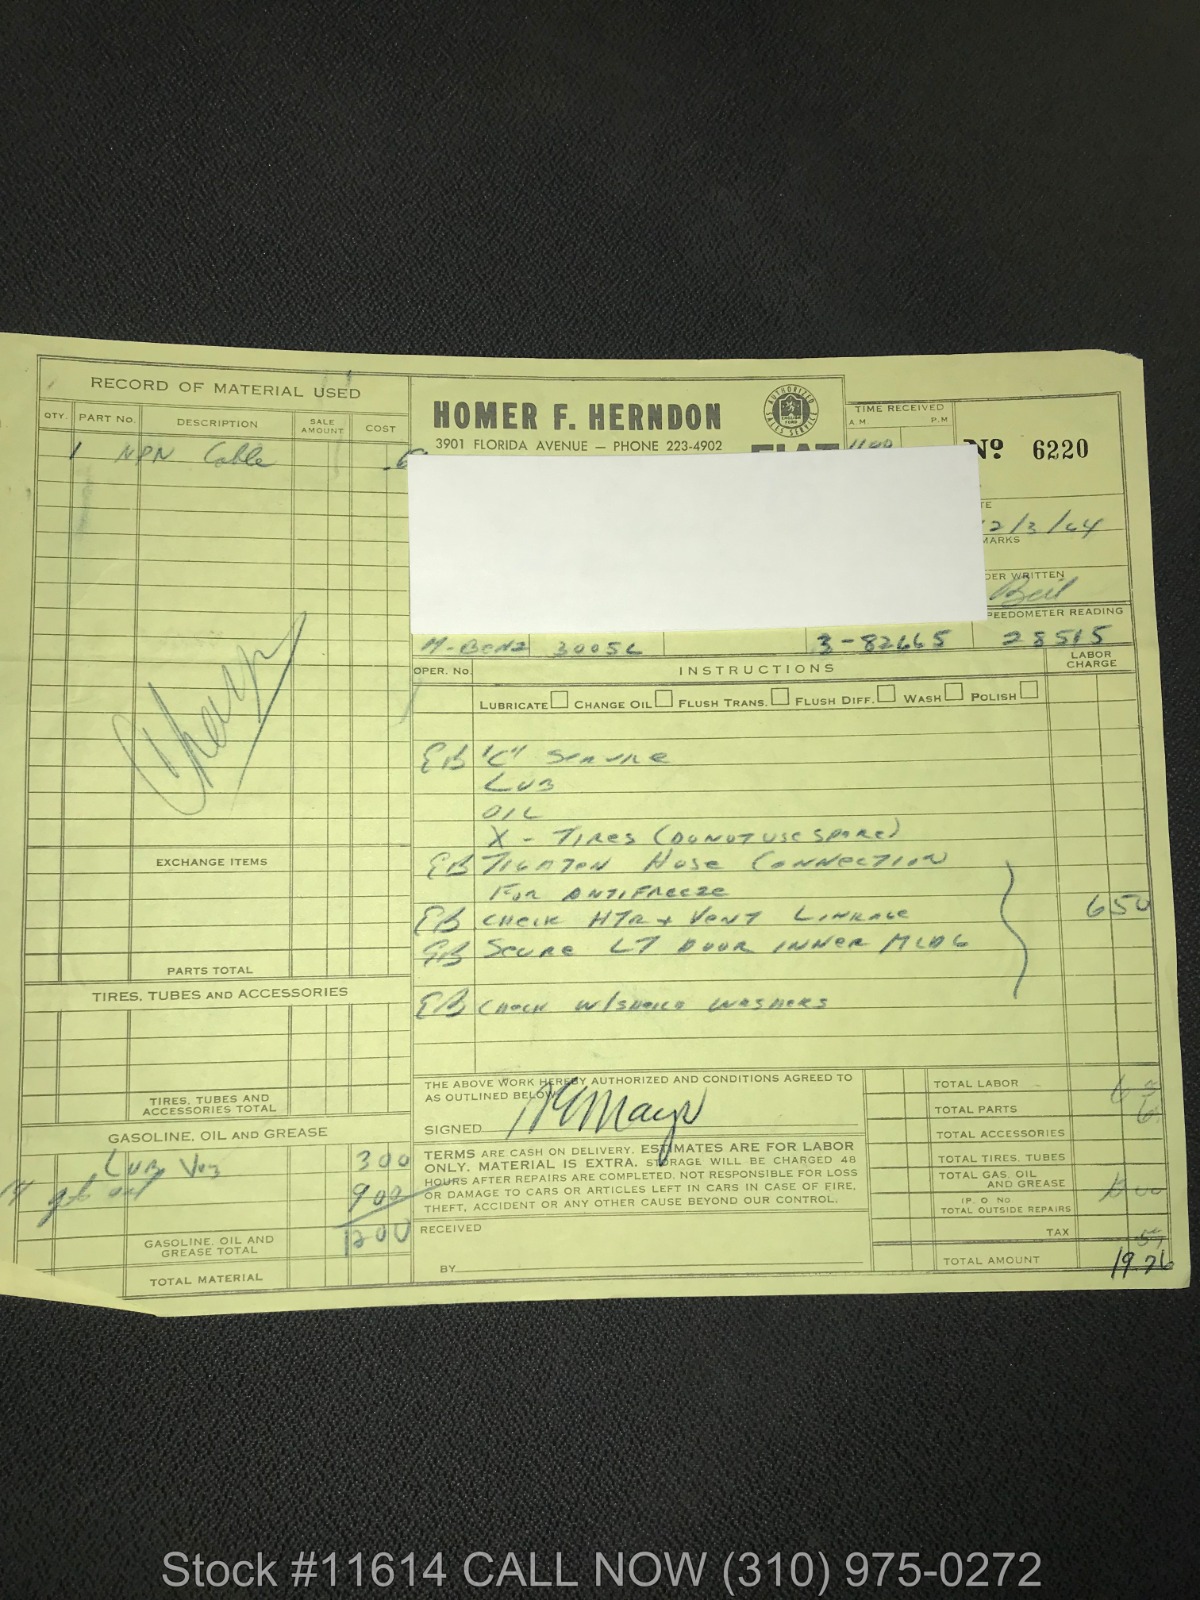 RECORD OF MATERIAL USED
QTY. PART No. DESCRIPTION SALE AMOUNT COST
1 NPN Cable
Charge
EXCHANGE ITEMS
PARTS TOTAL
TIRES, TUBES AND ACCESSORIES
TIRES, TUBES AND
ACCESSORIES TOTAL
GASOLINE, OIL AND GREASE
Lub 300
900
GASOLINE, OIL AND
GREASE TOTAL 1200
TOTAL MATERIAL
HOMER F. HERNDON
3901 FLORIDA AVENUE — PHONE 223-4902
AUTHORIZED SALES SERVICE
FIAT
TIME RECEIVED
A.M. P.M.
1100
No 6220
TE
2/3/64
MARKS
DER WRITTEN
PEEDOMETER READING
M-BENZ 300SL 3-82665 28515
OPER. No. INSTRUCTIONS LABOR CHARGE
LUBRICATE CHANGE OIL FLUSH TRANS. FLUSH DIFF. WASH POLISH
EB "C" SERVICE
LUB
OIL
X - TIRES (DO NOT USE SPARE)
EB TIGHTEN HOSE CONNECTION
FOR ANTIFREEZE
EB CHECK HTR + VENT LINKAGE 650
EB SECURE LT DOOR INNER MLDG
EB CHECK W/SHEILD WASHERS
THE ABOVE WORK HEREBY AUTHORIZED AND CONDITIONS AGREED TO
AS OUTLINED BELOW.
SIGNED
TERMS ARE CASH ON DELIVERY. ESTIMATES ARE FOR LABOR
ONLY. MATERIAL IS EXTRA. STORAGE WILL BE CHARGED 48
HOURS AFTER REPAIRS ARE COMPLETED. NOT RESPONSIBLE FOR LOSS
OR DAMAGE TO CARS OR ARTICLES LEFT IN CARS IN CASE OF FIRE,
THEFT, ACCIDENT OR ANY OTHER CAUSE BEYOND OUR CONTROL.
RECEIVED
BY
TOTAL LABOR
TOTAL PARTS
TOTAL ACCESSORIES
TOTAL TIRES, TUBES
TOTAL GAS, OIL
AND GREASE
(P. O. NO
TOTAL OUTSIDE REPAIRS
TAX
TOTAL AMOUNT 19.26
Stock #11614 CALL NOW (310) 975-0272